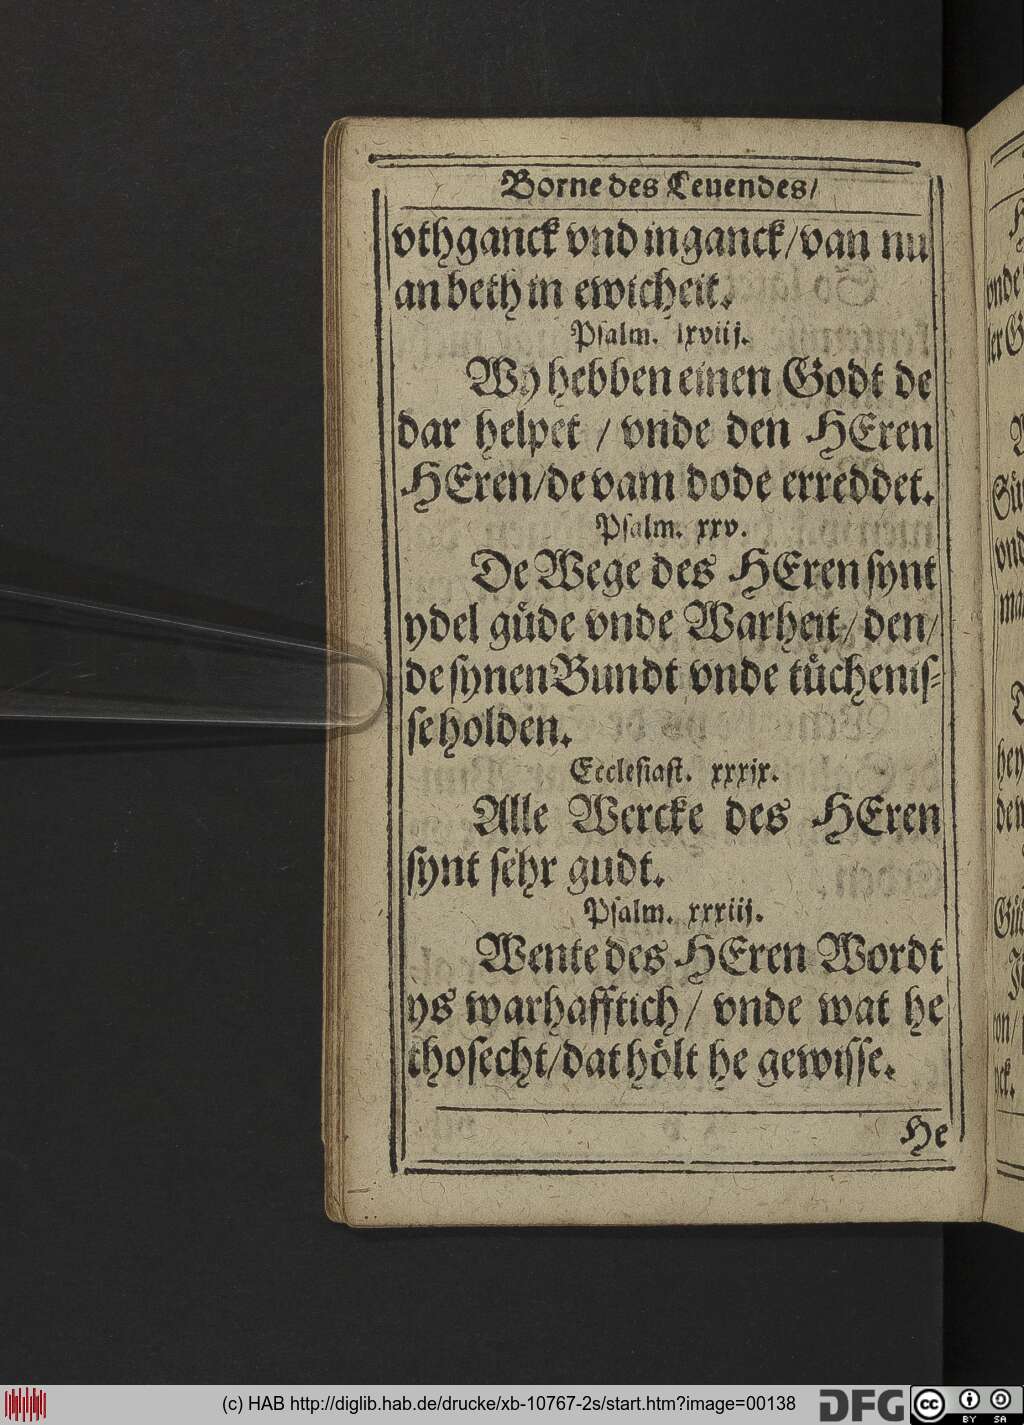 Borne des Leuendes/
vthganck vnd inganck/van nu
an beth in ewicheit.
Psalm. lxviij.
Wy hebben einen Godt de
dar helpet / vnde den HEren
HEren/de vam dode erreddet.
Psalm. xxv.
De Wege des HEren synt
ydel güde vnde Warheit/ den/
de synen Bundt vnde tüchenis-
se holden.
Ecclesiast. xxxix.
Alle Wercke des HEren
synt sehr gudt.
Psalm. xxxiij.
Wente des HEren Wordt
ys warhafftich/ vnde wat he
thosecht/dat hölt he gewisse.
He
(c) HAB http://diglib.hab.de/drucke/xb-10767-2s/start.htm?image=00138
DFG
cc
BY SA